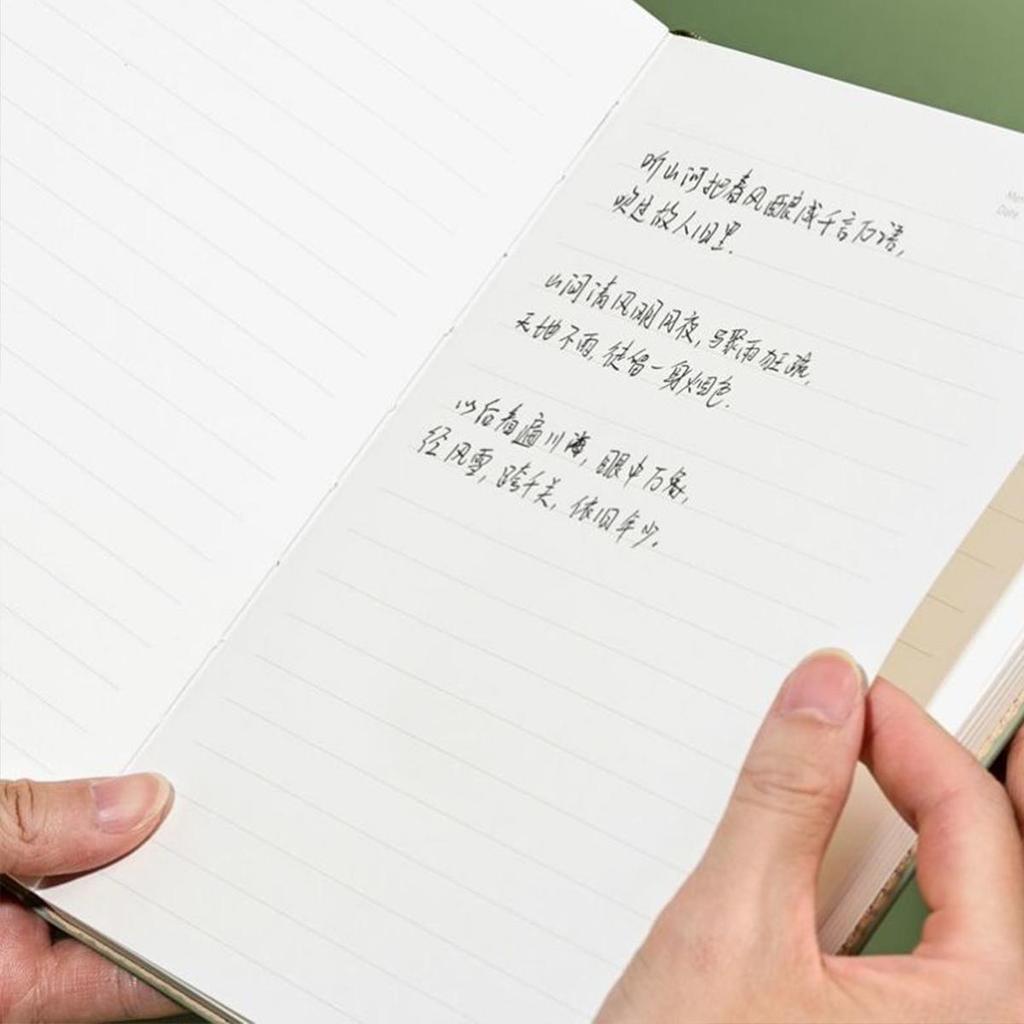 听山河把春风酿成千言万语，
吹过故人旧里.
山间清风朗月夜，骤雨狂疏，
天地不雨，徒留一身烟色.
以后看遍川海，眼中万象，
经风雪，跨千关，依旧年少.
Date